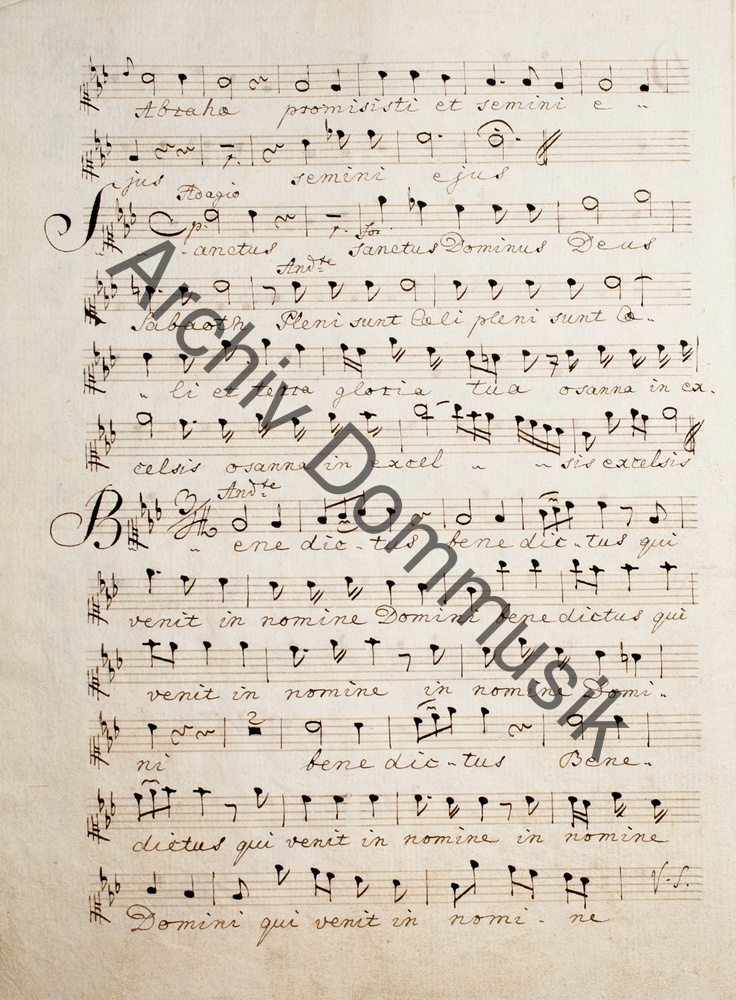 Abrahæ promisisti et semini e -
jus semini ejus
Adagio
p. for
Sanctus Sanctus Dominus Deus
And.te
Sabaoth Pleni sunt Cœli pleni sunt Cœ -
li et terra gloria tua osanna in ex -
celsis osanna in excel - - sis excelsis
And.te
Bene dic - tus bene dic - tus qui
venit in nomine Domini benedictus qui
venit in nomine in nomine Domi -
2
ni bene dic - tus Bene -
dictus qui venit in nomine in nomine
V. S.
Domini qui venit in nomi - ne
Archiv Dommusik